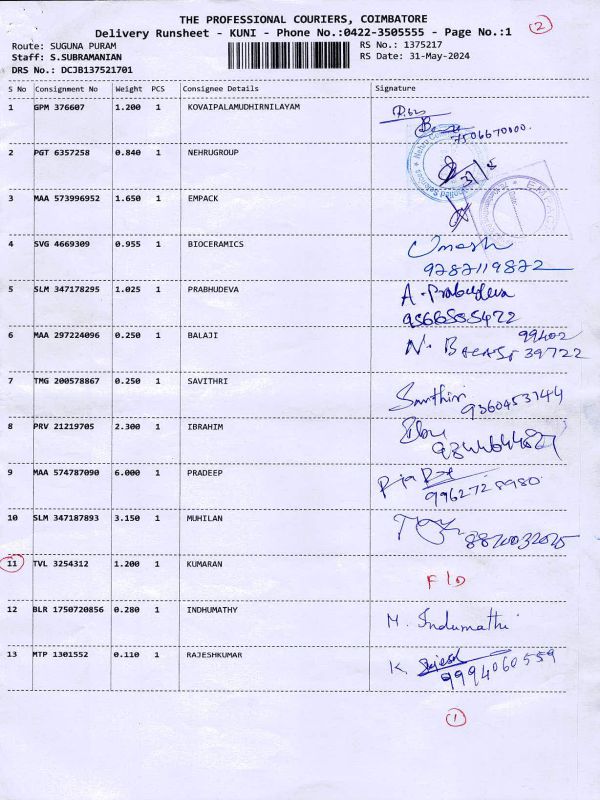 THE PROFESSIONAL COURIERS, COIMBATORE
Delivery Runsheet - KUNI - Phone No.:0422-3505555 - Page No.:1
2
Route: SUGUNA PURAM
RS No.: 1375217
Staff: S.SUBRAMANIAN
RS Date: 31-May-2024
DRS No.: DCJB137521701
S No Consignment No Weight PCS Consignee Details Signature
1 GPM 376607 1.200 1 KOVAIPALAMUDHIRNILAYAM
2 PGT 6357258 0.840 1 NEHRUGROUP
3 MAA 573996952 1.650 1 EMPACK
4 SVG 4669309 0.955 1 BIOCERAMICS Umesh
9787119872
5 SLM 347178295 1.025 1 PRABHUDEVA A. Prabudeva
6 MAA 297224096 0.250 1 BALAJI 99402
39722
7 TMG 200578867 0.250 1 SAVITHRI
9360453144
8 PRV 21219705 2.300 1 IBRAHIM
9 MAA 574787090 6.000 1 PRADEEP
9962728980
10 SLM 347187893 3.150 1 MUHILAN
11 TVL 3254312 1.200 1 KUMARAN F/D
12 BLR 1750720856 0.280 1 INDHUMATHY M. Indumathi
13 MTP 1301552 0.110 1 RAJESHKUMAR K
9994060559
1